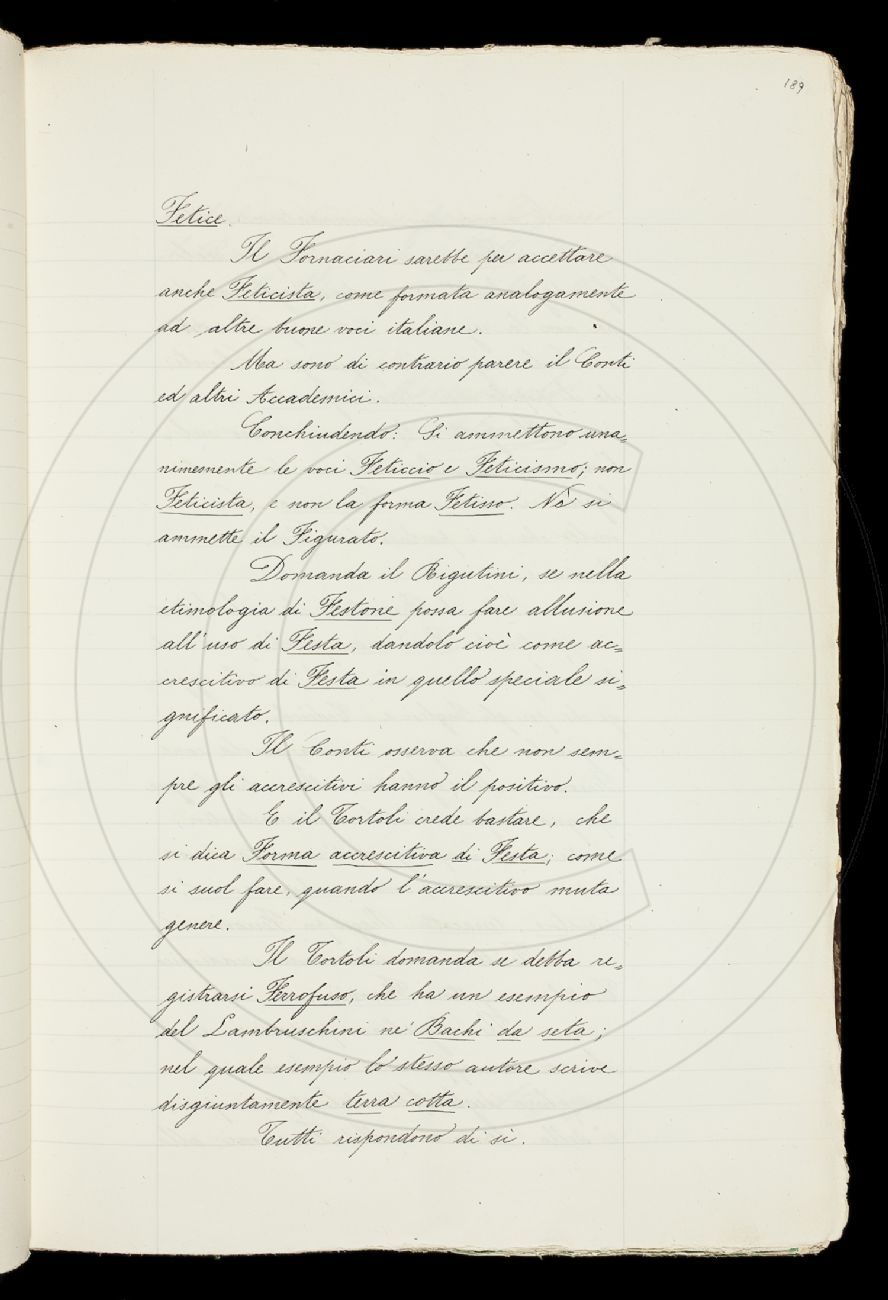 189
Fetice.
Il Fornaciari sarebbe per accettare
anche Feticista, come formata analogamente
ad altre buone voci italiane.
Ma sono di contrario parere il Conti
ed altri Accademici.
Conchiudendo: Si ammettono una=
nimemente le voci Feticcio e Feticismo; non
Feticista, e non la forma Fetisso. Nè si
ammette il Figurato.
Domanda il Rigutini, se nella
etimologia di Festone possa fare allusione
all'uso di Festa, dandolo cioè come ac=
crescitivo di Festa in quello speciale si=
gnificato.
Il Conti osserva che non sem=
pre gli accrescitivi hanno il positivo.
E il Tortoli crede bastare, che
si dica Forma accrescitiva di Festa; come
si suol fare, quando l'accrescitivo muta
genere.
Il Tortoli domanda se debba re=
gistrarsi Ferrofuso, che ha un esempio
del Lambruschini ne' Bachi da seta;
nel quale esempio lo stesso autore scrive
disgiuntamente terra cotta.
Tutti rispondono di sì.